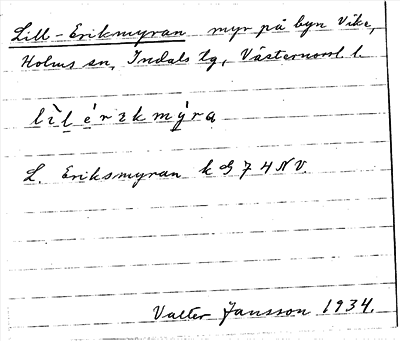 Lill-Erikmyran myr på byn Vike,
Holms sn, Indals tg, Västernorrl. l.
lìl érɩkmýra
L. Eriksmyran k G 74 NV.
Valter Jansson 1934.